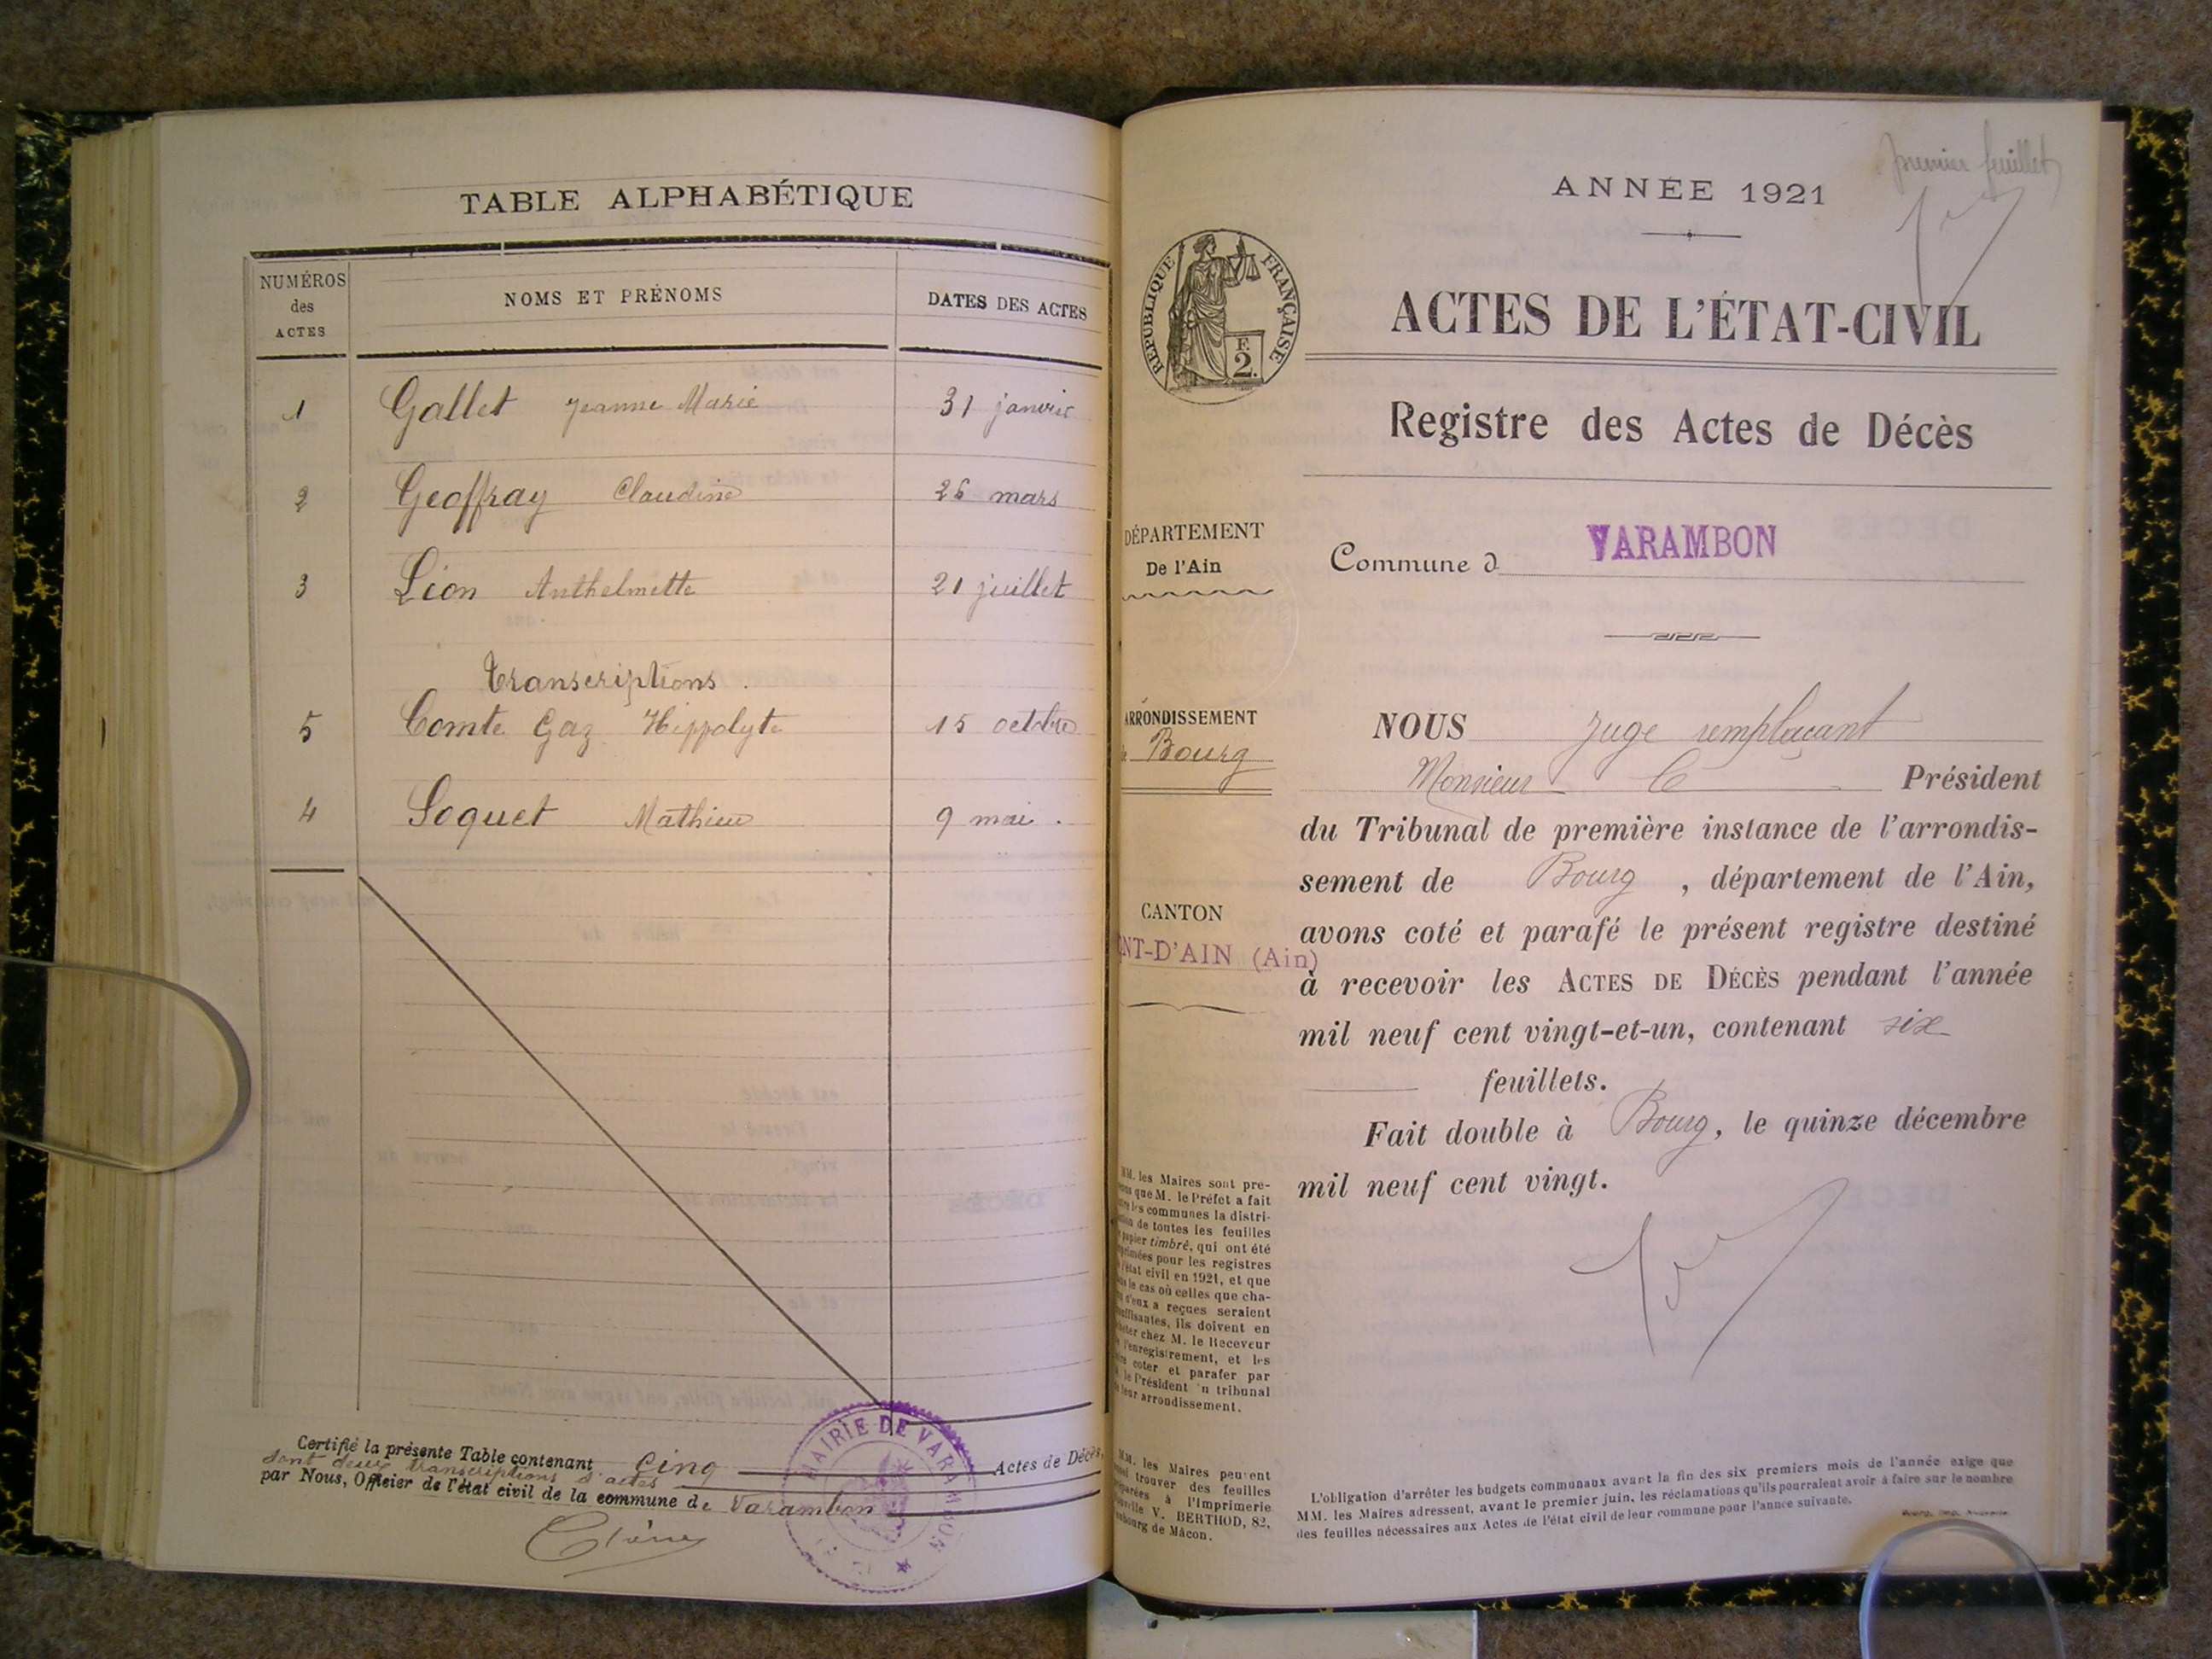 TABLE ALPHABÉTIQUE
NUMÉROS des ACTES
NOMS ET PRÉNOMS
DATES DES ACTES
1 Gallet Jeanne Marie 31 janvier
2 Geoffray Claudine 26 mars
3 Léon Anthelmette 21 juillet
Transcriptions.
5 Comte Gaz Hippolyte 15 octobre
4 Soquet Mathieu 9 mai.
Certifié la présente Table contenant Cinq Actes de Décès,
dont deux transcriptions d'actes
par Nous, Officier de l'état civil de la commune de Varambon
MAIRIE DE VARAMBON
premier feuillet
ANNÉE 1921
RÉPUBLIQUE FRANÇAISE
F.
2.
ACTES DE L'ÉTAT-CIVIL
Registre des Actes de Décès
DÉPARTEMENT
De l'Ain
Commune d VARAMBON
ARRONDISSEMENT
de Bourg
CANTON
NT-D'AIN (Ain)
NOUS Juge remplaçant
Monsieur le Président
du Tribunal de première instance de l'arrondis-
sement de Bourg, département de l'Ain,
avons coté et parafé le présent registre destiné
à recevoir les ACTES DE DÉCÈS pendant l'année
mil neuf cent vingt-et-un, contenant six
feuillets.
Fait double à Bourg, le quinze décembre
mil neuf cent vingt.
MM. les Maires sont pré-
que M. le Préfet a fait
les communes la distri-
de toutes les feuilles
papier timbré, qui ont été
pour les registres
l'état civil en 1921, et que
le cas où celles que cha-
d'eux a reçues seraient
ils doivent en
chez M. le Receveur
l'enregistrement, et les
coter et parafer par
le Président u tribunal
leur arrondissement.
MM. les Maires peuvent
trouver des feuilles
à l'Imprimerie
V. BERTHOD, 82,
de Mâcon.
L'obligation d'arrêter les budgets communaux avant la fin des six premiers mois de l'année exige que
MM. les Maires adressent, avant le premier juin, les réclamations qu'ils pourraient avoir à faire sur le nombre
des feuilles nécessaires aux Actes de l'état civil de leur commune pour l'année suivante.